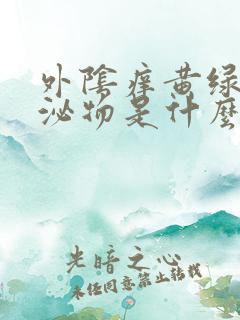 外陰痒黄绿
泌物是什麽
光暗之心
未经同意禁止转载